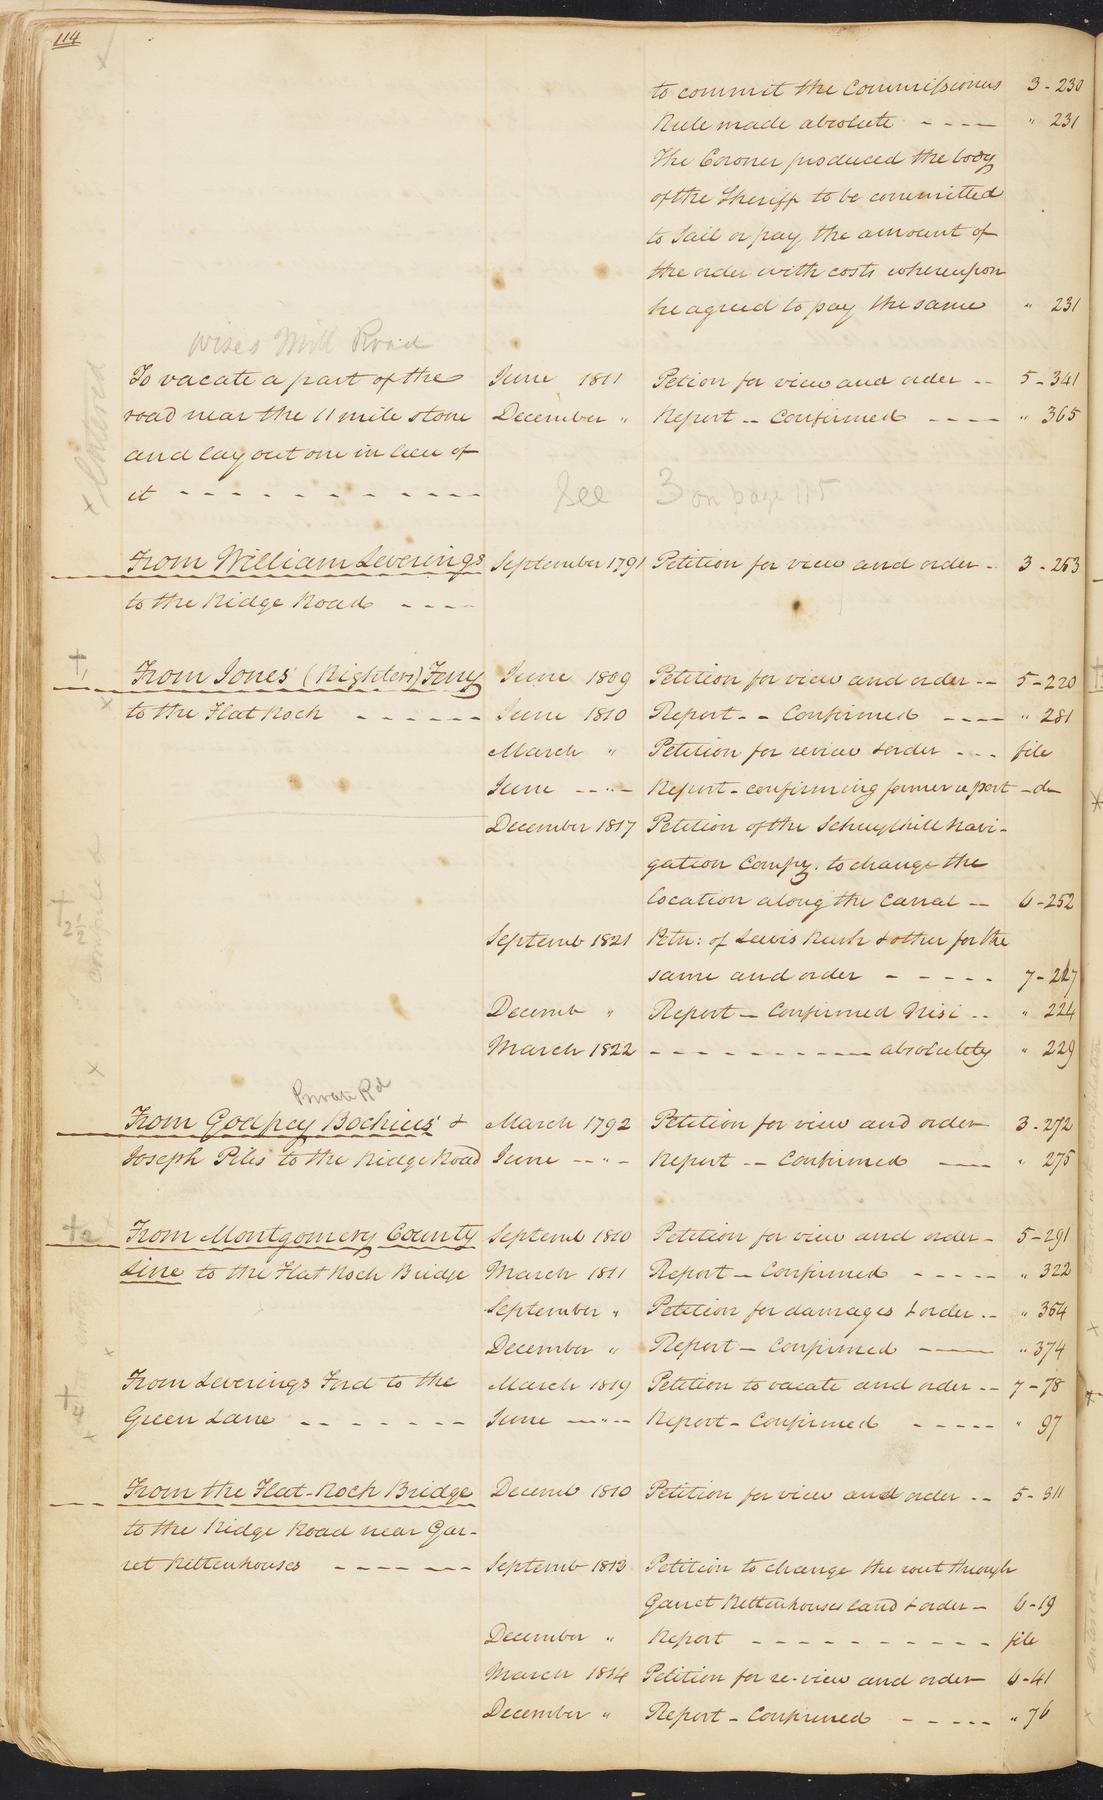 114
to commit the Commissioners 3 - 230
Rule made absolute - - - - " 231
The Coroner produced the body
of the Sheriff to be committed
to Jail or pay the amount of
the order with costs whereupon
he agreed to pay the same " 231
Wises Mill Road
To vacate a part of the June 1811 Petion for view and order - - 5 - 341
road near the 11 mile stone December " Report - - Confirmed - - - - " 365
and lay out one in lieu of
it - - - - - - - - - - - -
See 3 on page 115
From William Leverings September 1791 Petition for view and order - 3 - 253
to the Ridge Road - - - -
†1 From Jones' (Righters) Ferry June 1809 Petition for view and order - - 5 - 220
to the Flat Rock - - - - - - June 1810 Report - - Confirmed - - - - " 281
March " Petition for review & order - - - file
June - - " - Report - confirming former report - do -
December 1817 Petition of the Schuylkill Navi-
gation Compy. to change the
location along the Canal - - 6 - 252
†2½ Septemb 1821 Petn: of Lewis Rush & other for the
same and order - - - - - 7 - 217
Decemb " Report - Confirmed Nisi - - " 224
March 1822 - - - - - - - - - absolutely " 229
Private Rd
From Godfrey Bockius' & March 1792 Petition for view and order 3 - 272
Joseph Piles to the Ridge Road June - - " - Report - - Confirmed - - - " 275
†2 From Montgomery County Septemb 1810 Petition for view and order - 5 - 291
Line to the Flat Rock Bridge March 1811 Report - Confirmed - - - - - " 322
September " Petition for damages & order - - " 354
December " Report - Confirmed - - - - " 374
From Leverings Ford to the March 1819 Petition to vacate and order - - 7 - 78
†4 Green Lane - - - - - - - June - - " - - Report - Confirmed - - - - - " 97
From the Flat-Rock Bridge Decemb 1810 Petition for view and order - - 5 - 311
to the Ridge Road near Gar-
ret Rittenhouses - - - - - - - Septemb 1813 Petition to change the rout through
Garret Rittenhouses land & order - 6 - 19
December " Report - - - - - - - - - - - file
March 1814 Petition for re-view and order 6 - 41
December " Report - Confirmed - - - - - " 76